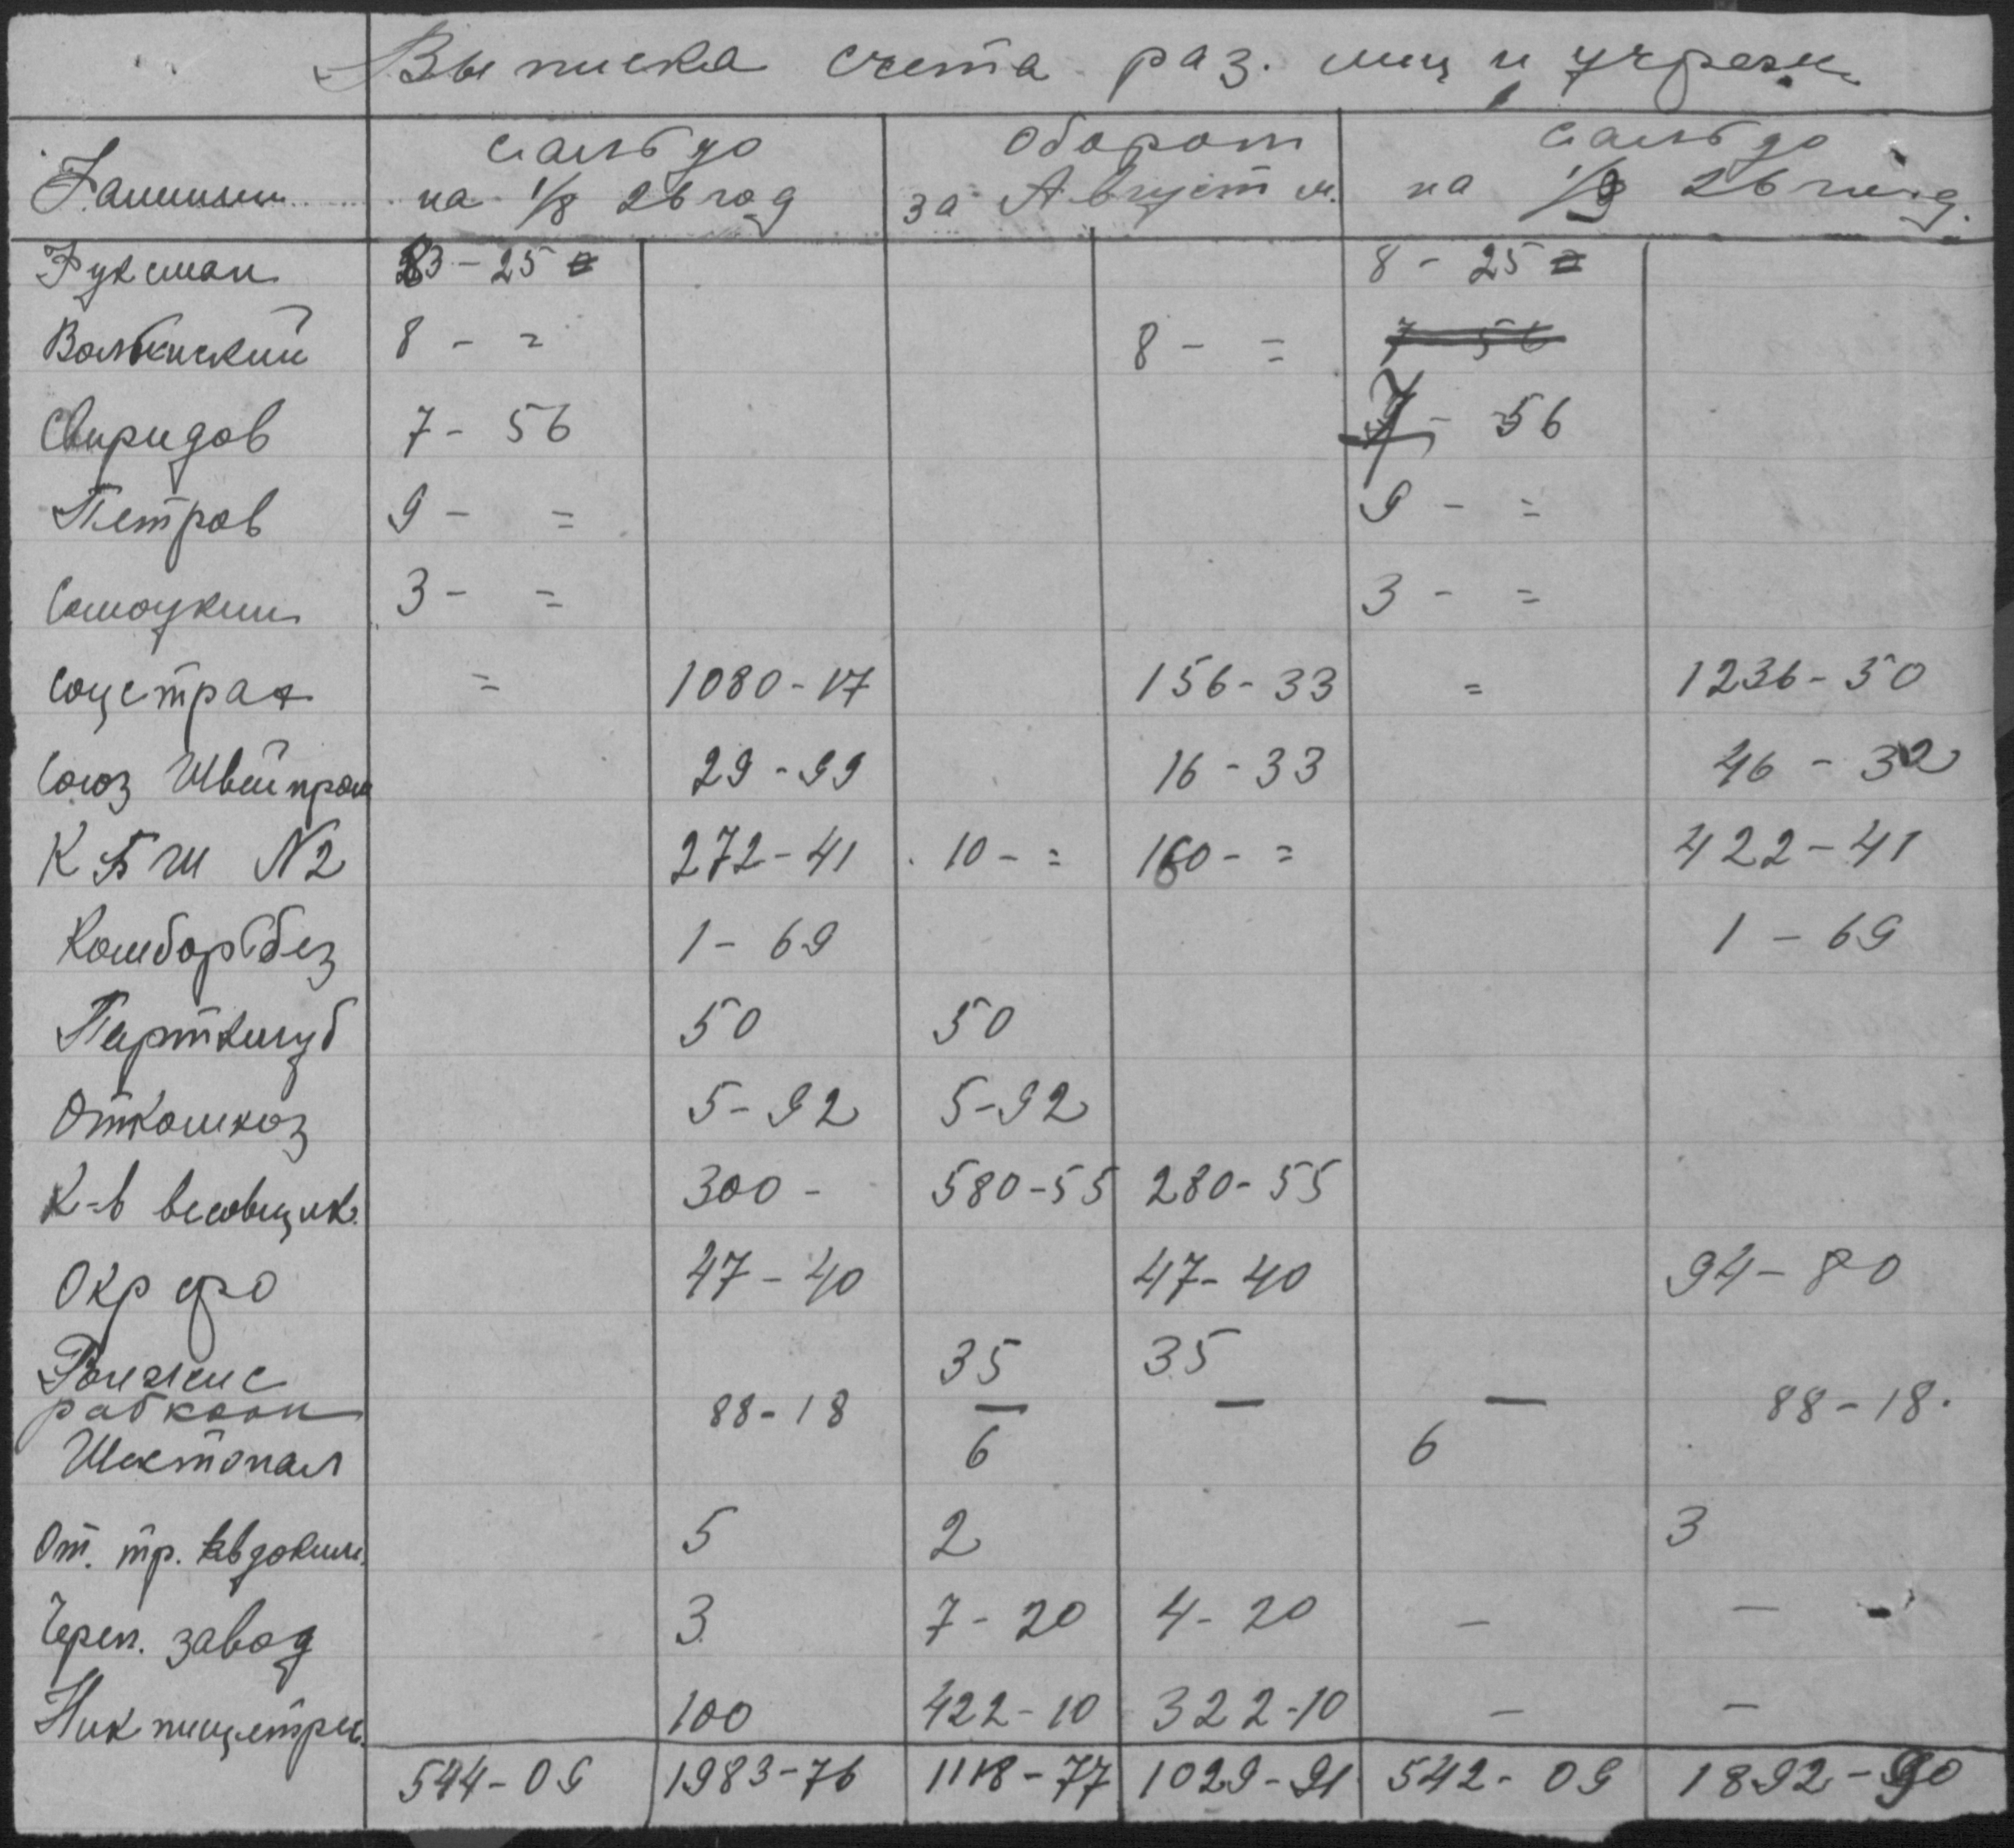 Выписка счета раз. лиц и учреж
Фамилии
сальдо на 1/8 26 год
оборот за Август м.
сальдо на 1/9 26
Фуксман 83-25 8-25
8 - = 8 - = 7 56
Свиридов 7-56 7-56
Петров 9 - = 9 - =
Самоукин 3 - = 3 - =
Соцстрах = 1080-17 156-33 = 1236-50
Союз Швейпром 29-99 16-33 46-32
№2 272-41 10 - = 160 - = 422-41
Комборбез 1-69 1-69
Партклуб 50 50
Откомхоз 5-92 5-92
К-в весовщик. 300 - 580-55 280-55
Окр фо 47-40 47-40 94-80
35 35
рабкооп 88-18 — — — 88-18.
Шестопал 6 6
От. тр. Евдоким. 5 2 3
Череп. завод 3 7-20 4-20 — —
Ник пищетрес. 100 422-10 322-10 — —
544-09 1983-76 1118-77 1029-91 542-09 1892-90